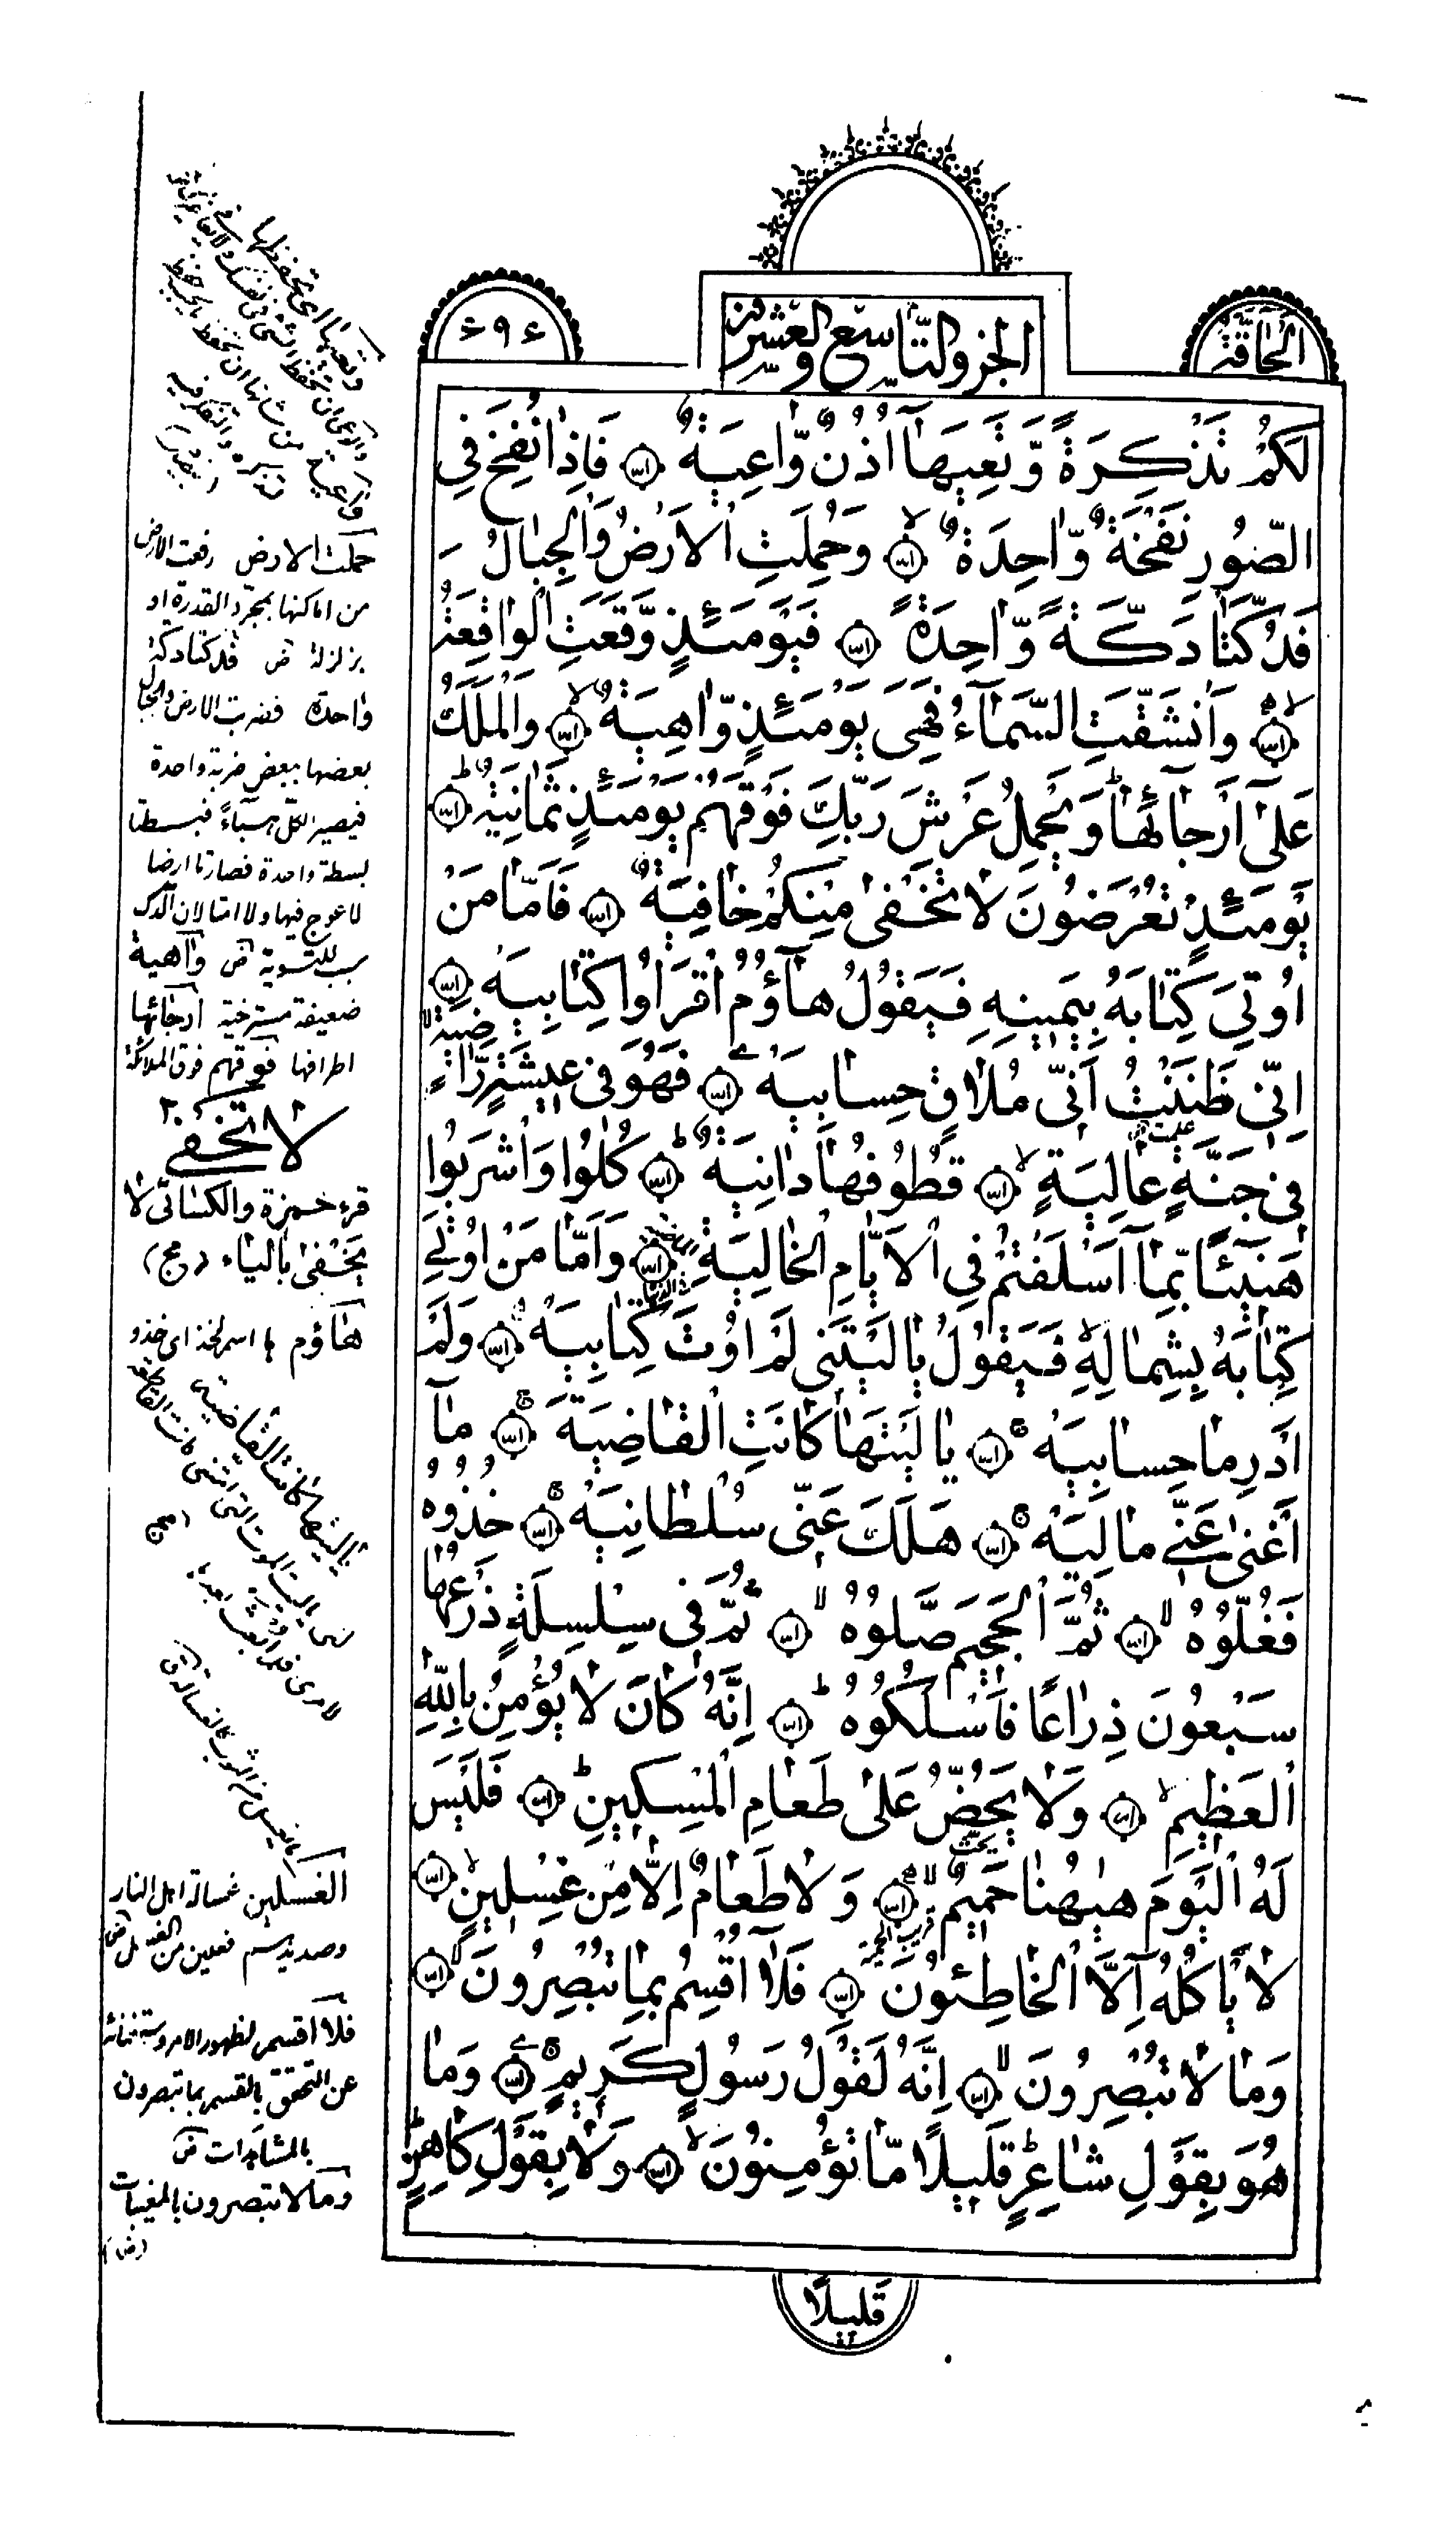 الحاقة
الجزو التاسع والعشرون
٦٩٤
لَكُمْ تَذْكِرَةً وَّتَعِيَهَآ اُذُنٌ وَّاعِيَةٌ فَاِذَا نُفِخَ فِى
الصُّورِ نَفْخَةٌ وَّاحِدَةٌ وَحُمِلَتِ الْاَرْضُ وَالْجِبَالُ
فَدُكَّتَا دَكَّةً وَّاحِدَةً فَيَوْمَئِذٍ وَّقَعَتِ الْوَاقِعَةُ
وَانْشَقَّتِ السَّمَآءُ فَهِىَ يَوْمَئِذٍ وَّاهِيَةٌ وَالْمَلَكُ
عَلٰٓى اَرْجَآئِهَا وَيَحْمِلُ عَرْشَ رَبِّكَ فَوْقَهُمْ يَوْمَئِذٍ ثَمَانِيَةٌ
يَوْمَئِذٍ تُعْرَضُونَ لَا تَخْفٰى مِنْكُمْ خَافِيَةٌ فَاَمَّا مَنْ
اُوتِىَ كِتَابَهُ بِيَمِينِهِ فَيَقُولُ هَآؤُمُ اقْرَاُوا كِتَابِيَهْ
اِنِّى ظَنَنْتُ اَنِّى مُلَاقٍ حِسَابِيَهْ فَهُوَ فِى عِيشَةٍ رَّاضِيَةٍ
فِى جَنَّةٍ عَالِيَةٍ قُطُوفُهَا دَانِيَةٌ كُلُوا وَاشْرَبُوا
هَنِيٓئًا بِّمَآ اَسْلَفْتُمْ فِى الْاَيَّامِ الْخَالِيَةِ وَاَمَّا مَنْ اُوتِىَ
كِتَابَهُ بِشِمَالِهِ فَيَقُولُ يَالَيْتَنِى لَمْ اُوتَ كِتَابِيَهْ وَلَمْ
اَدْرِ مَا حِسَابِيَهْ يَالَيْتَهَا كَانَتِ الْقَاضِيَةَ مَآ
اَغْنٰى عَنِّى مَالِيَهْ هَلَكَ عَنِّى سُلْطَانِيَهْ خُذُوهُ
فَغُلُّوهُ ثُمَّ الْجَحِيمَ صَلُّوهُ ثُمَّ فِى سِلْسِلَةٍ ذَرْعُهَا
سَبْعُونَ ذِرَاعًا فَاسْلُكُوهُ اِنَّهُ كَانَ لَا يُؤْمِنُ بِاللّٰهِ
الْعَظِيمِ وَلَا يَحُضُّ عَلٰى طَعَامِ الْمِسْكِينِ فَلَيْسَ
لَهُ الْيَوْمَ هٰهُنَا حَمِيمٌ وَلَا طَعَامٌ اِلَّا مِنْ غِسْلِينٍ
لَا يَاْكُلُهُ اِلَّا الْخَاطِئُونَ فَلَآ اُقْسِمُ بِمَا تُبْصِرُونَ
وَمَا لَا تُبْصِرُونَ اِنَّهُ لَقَوْلُ رَسُولٍ كَرِيمٍ وَمَا
هُوَ بِقَوْلِ شَاعِرٍ قَلِيلًا مَّا تُؤْمِنُونَ وَلَا بِقَوْلِ كَاهِنٍ
قَلِيلًا
وتعيها اى تحفظها
حملت الارض رفعت الارض
من اماكنها بمجرد القدرة او
بزلزلة ض فدكتا دكة
واحدة فضربت الارض والجبال
بعضها ببعض ضربة واحدة
فيصير الكل هبآءً فبسطتا
بسطة واحدة فصارتا ارضا
لا عوج فيها ولا امتا لان الدك
سبب للتسوية ض واهية
ضعيفة مسترخية ارجائها
اطرافها فوقهم فوق الملائكة
لا تخفى
قرء حمزة والكسائى لا
يَخْفٰى بالياء (مج)
هاؤم ها اسم لخذ اى خذو
ياليتها كانت القاضية
الغسلين غسالة اهل النار
وصديدهم فعلين من الغسل ض
فلا اقسم لظهور الامر واستغنائه
عن التحقق بالقسم بما تبصرون
بالمشاهدات ض
وما لا تبصرون بالمغيبات
(ض)